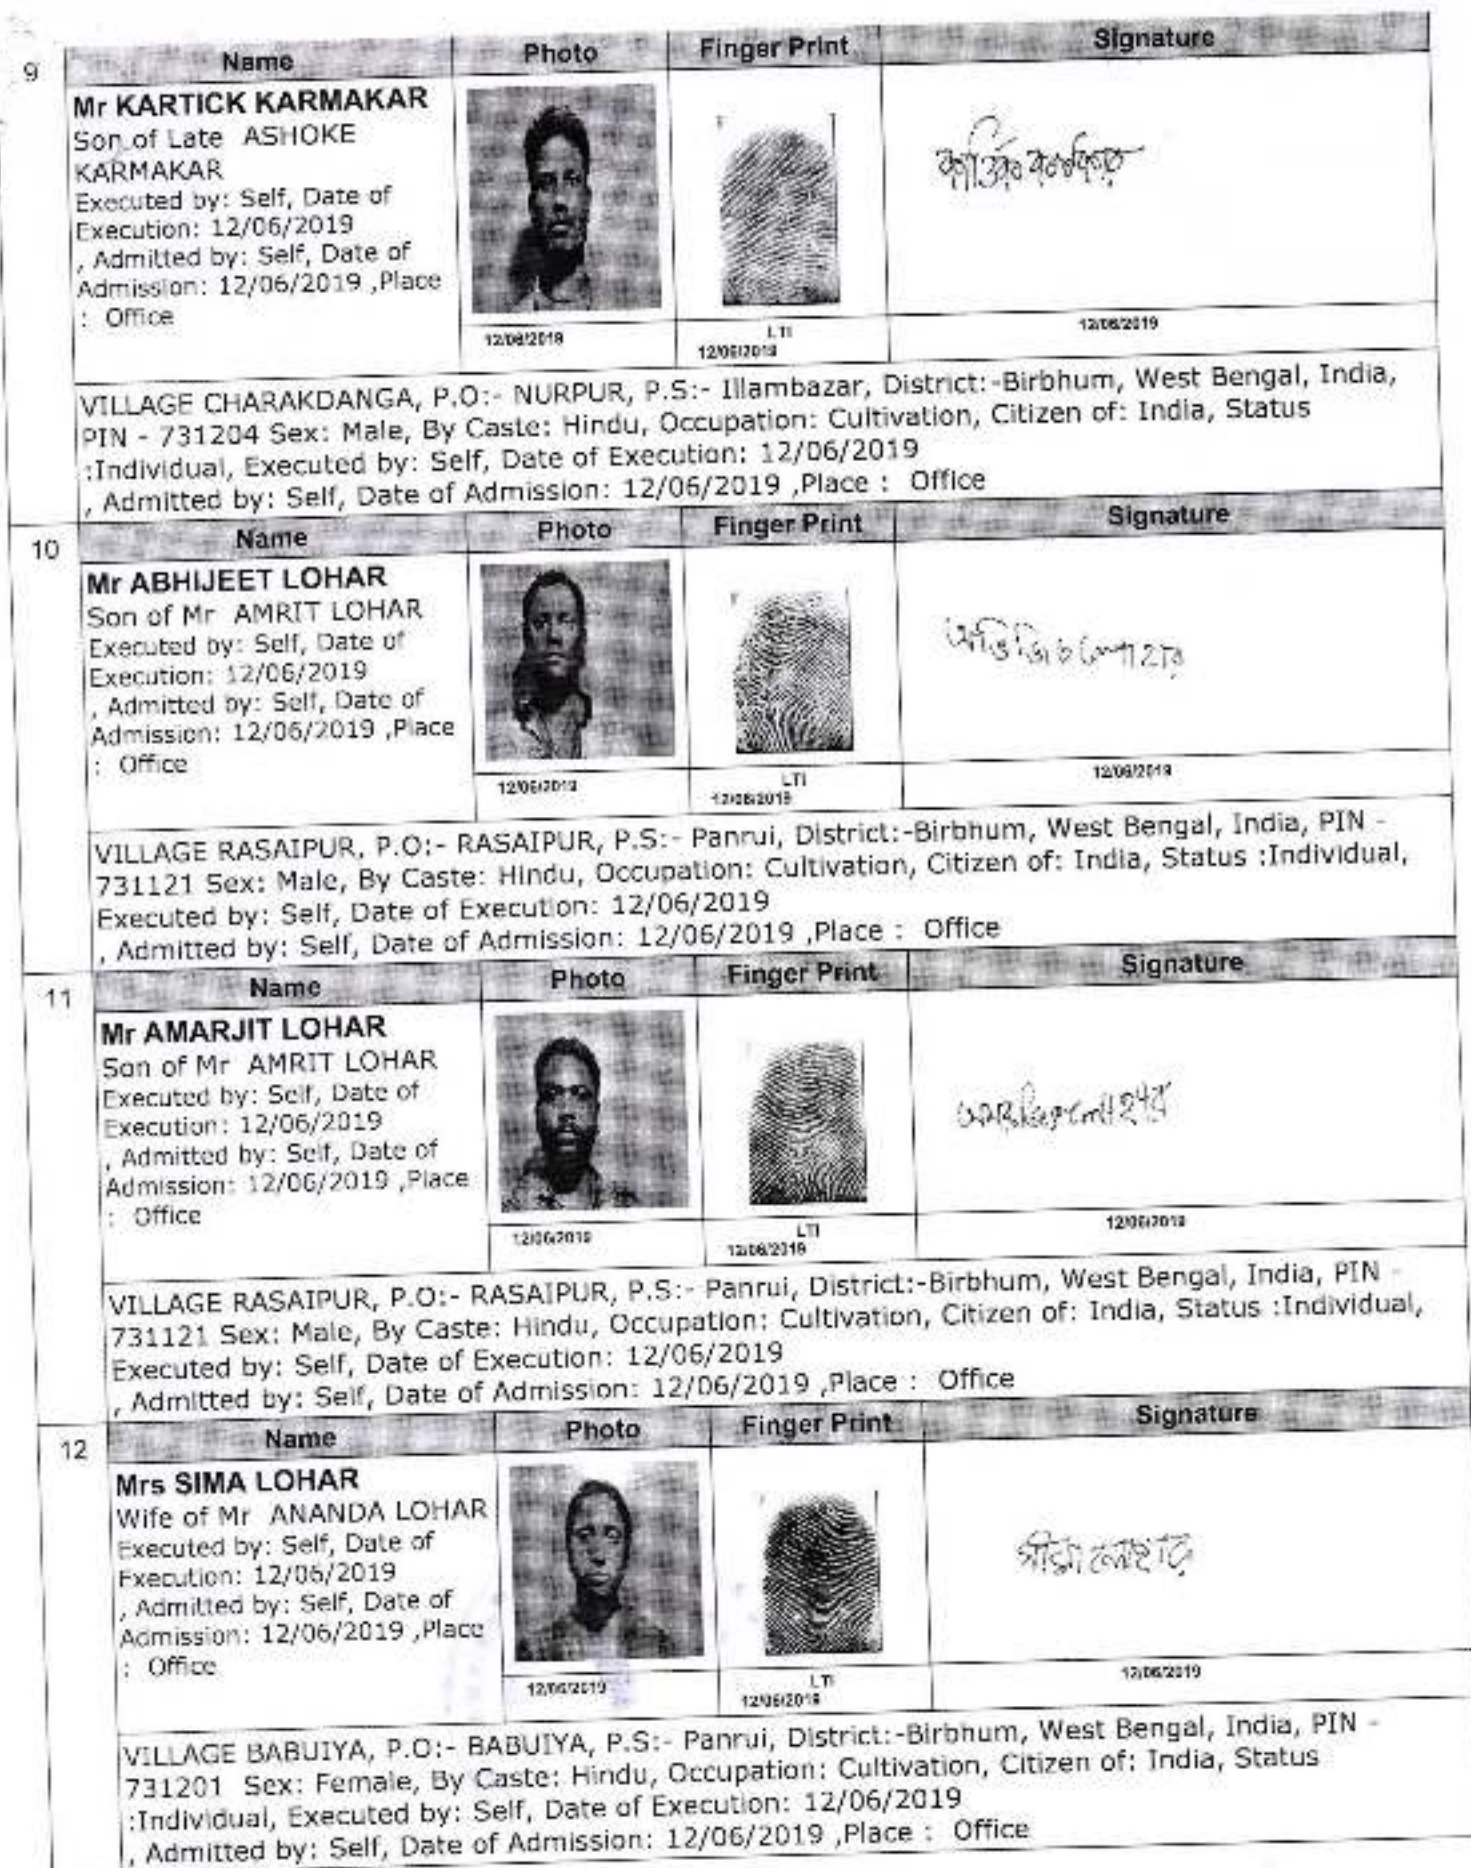 9
Name Photo Finger Print Signature
Mr KARTICK KARMAKAR
Son of Late ASHOKE
KARMAKAR
Executed by: Self, Date of
Execution: 12/06/2019
, Admitted by: Self, Date of
Admission: 12/06/2019 ,Place
: Office
কার্তিক কর্মকার
12/06/2019 LTI 12/06/2019
12/06/2019
VILLAGE CHARAKDANGA, P.O:- NURPUR, P.S:- Illambazar, District:-Birbhum, West Bengal, India,
PIN - 731204 Sex: Male, By Caste: Hindu, Occupation: Cultivation, Citizen of: India, Status
:Individual, Executed by: Self, Date of Execution: 12/06/2019
, Admitted by: Self, Date of Admission: 12/06/2019 ,Place : Office
10
Name Photo Finger Print Signature
Mr ABHIJEET LOHAR
Son of Mr AMRIT LOHAR
Executed by: Self, Date of
Execution: 12/06/2019
, Admitted by: Self, Date of
Admission: 12/06/2019 ,Place
: Office
12/06/2019 LTI 12/06/2019
12/06/2019
VILLAGE RASAIPUR, P.O:- RASAIPUR, P.S:- Panrui, District:-Birbhum, West Bengal, India, PIN -
731121 Sex: Male, By Caste: Hindu, Occupation: Cultivation, Citizen of: India, Status :Individual,
Executed by: Self, Date of Execution: 12/06/2019
, Admitted by: Self, Date of Admission: 12/06/2019 ,Place : Office
11
Name Photo Finger Print Signature
Mr AMARJIT LOHAR
Son of Mr AMRIT LOHAR
Executed by: Self, Date of
Execution: 12/06/2019
, Admitted by: Self, Date of
Admission: 12/06/2019 ,Place
: Office
12/06/2019 LTI 12/06/2019
12/06/2019
VILLAGE RASAIPUR, P.O:- RASAIPUR, P.S:- Panrui, District:-Birbhum, West Bengal, India, PIN -
731121 Sex: Male, By Caste: Hindu, Occupation: Cultivation, Citizen of: India, Status :Individual,
Executed by: Self, Date of Execution: 12/06/2019
, Admitted by: Self, Date of Admission: 12/06/2019 ,Place : Office
12
Name Photo Finger Print Signature
Mrs SIMA LOHAR
Wife of Mr ANANDA LOHAR
Executed by: Self, Date of
Execution: 12/06/2019
, Admitted by: Self, Date of
Admission: 12/06/2019 ,Place
: Office
সীমা লোহার
12/06/2019 LTI 12/06/2019
12/06/2019
VILLAGE BABUIYA, P.O:- BABUIYA, P.S:- Panrui, District:-Birbhum, West Bengal, India, PIN -
731201 Sex: Female, By Caste: Hindu, Occupation: Cultivation, Citizen of: India, Status
:Individual, Executed by: Self, Date of Execution: 12/06/2019
, Admitted by: Self, Date of Admission: 12/06/2019 ,Place : Office